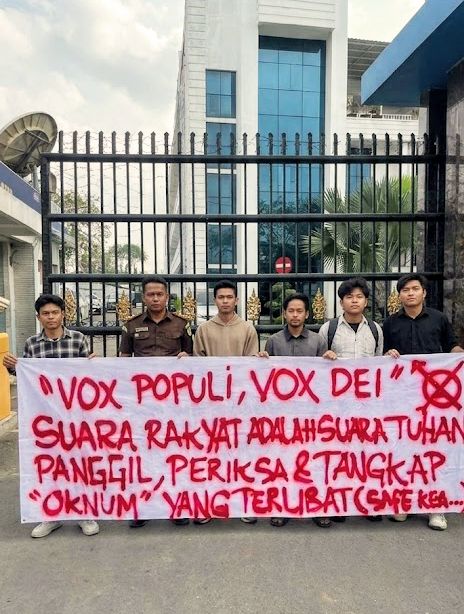 "VOX POPULI, VOX DEI"
SUARA RAKYAT ADALAH SUARA TUHAN
PANGGIL, PERIKSA & TANGKAP
"OKNUM" YANG TERLIBAT (SAFE KEA...)